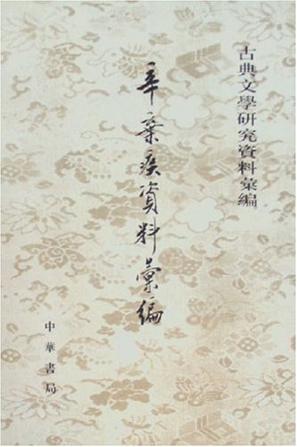 古典文學硏究資料彙編
辛棄疾資料彙編
中華書局